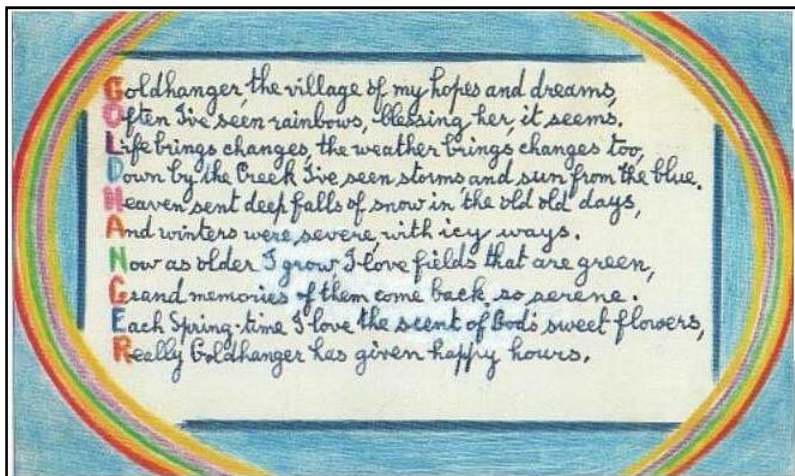 Goldhanger, the village of my hopes and dreams,
Often I've seen rainbows, blessing her, it seems.
Life brings changes, the weather brings changes too,
Down by the Creek I've seen storms and sun from the blue.
Heaven sent deep falls of snow in the old old days,
And winters were severe, with icy ways.
Now as older I grow I love fields that are green,
Grand memories of them come back so serene.
Each Spring-time I love the scent of God's sweet flowers,
Really Goldhanger has given happy hours.